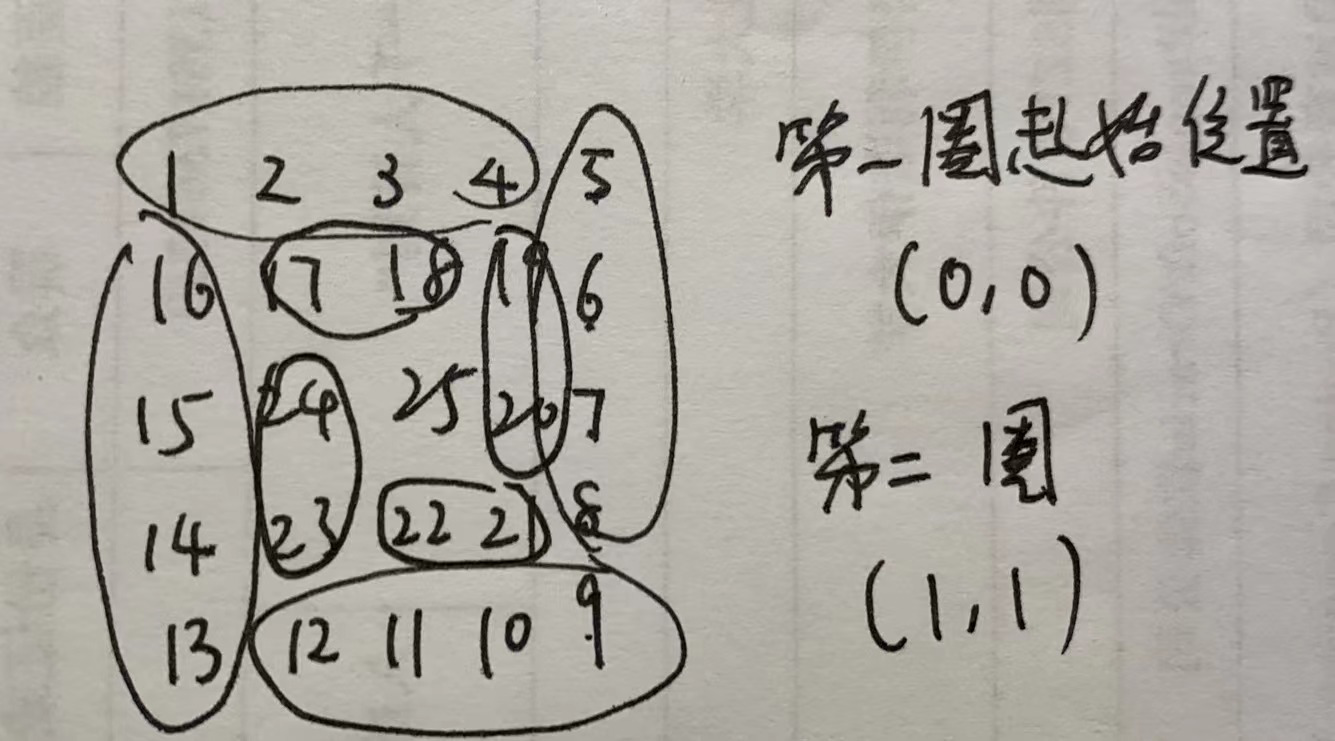 1 2 3 4 5
16 17 18 19 6
15 24 25 20 7
14 23 22 21 8
13 12 11 10 9
第一圈起始位置
(0,0)
第二圈
(1,1)